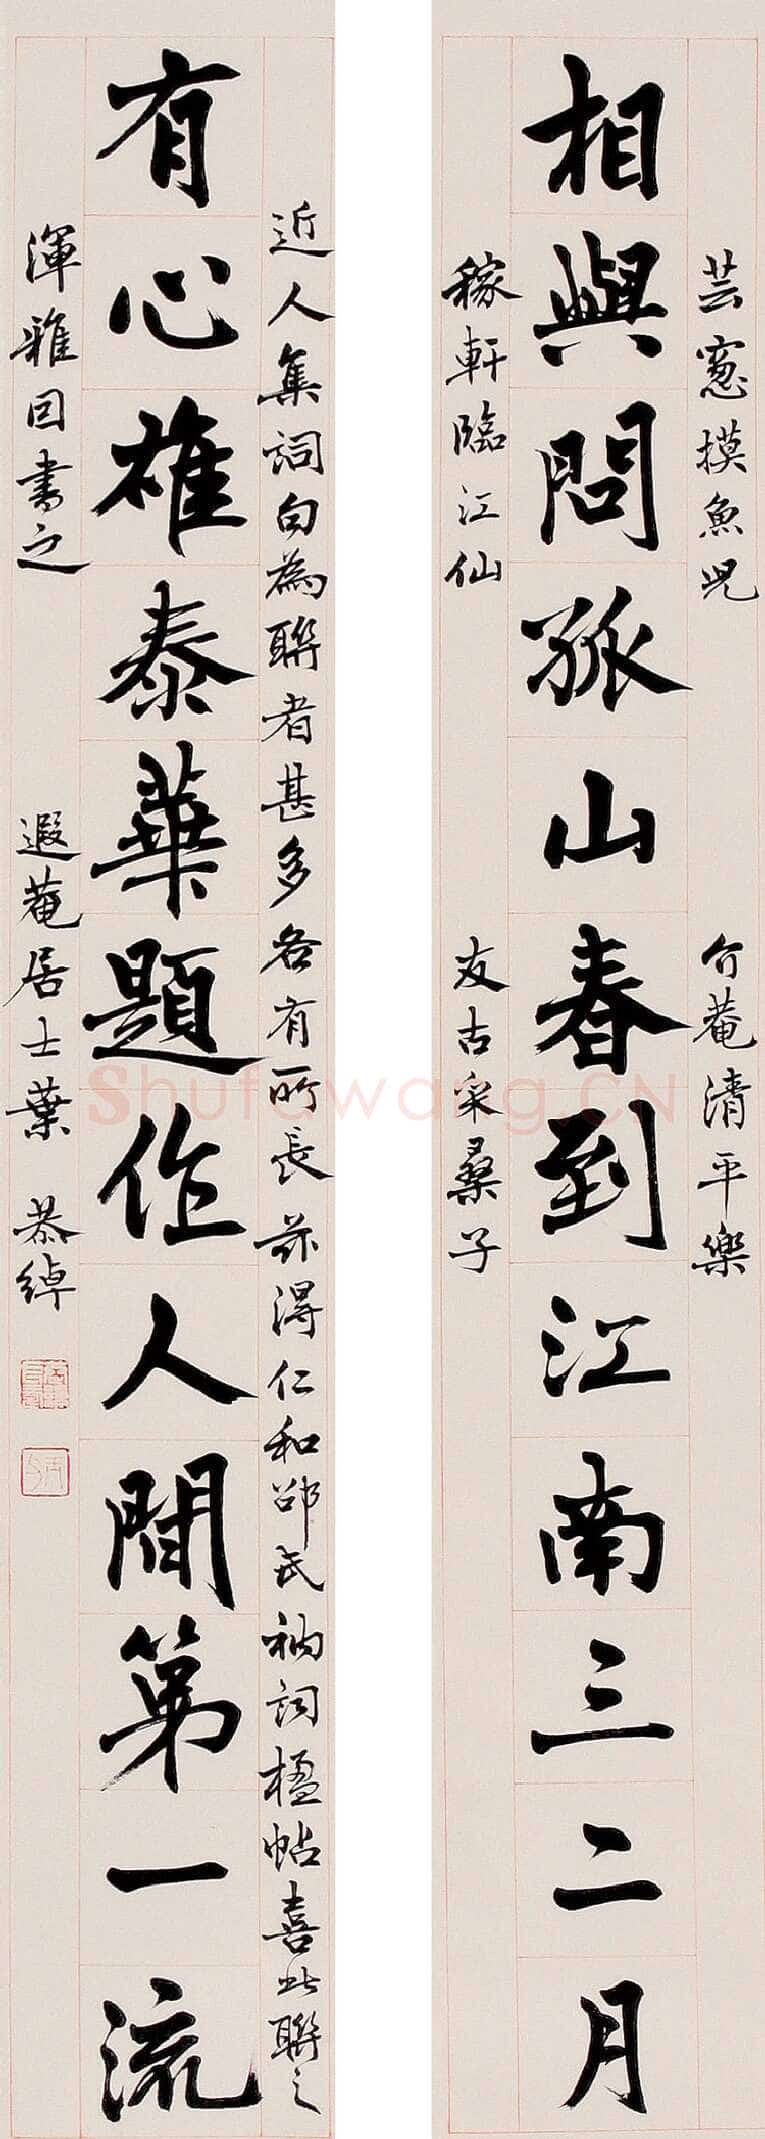 芸窻摸魚児 介菴清平樂
相與問孤山春到江南三二月
稼軒臨江仙 友古采桑子
近人集詞句為聯者甚多各有所長茲得仁和邵氏衲詞楹帖喜此聯之
有心雄泰華題作人間第一流
渾雅因書之 遐菴居士葉恭綽
Shufawang.CN